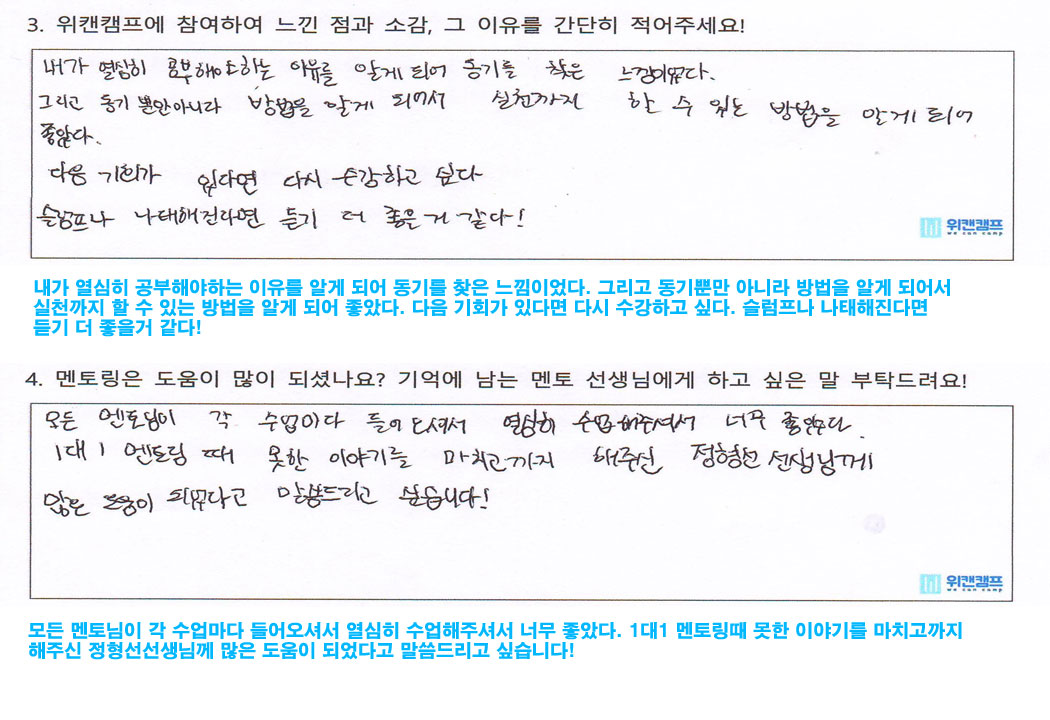 3. 위캔캠프에 참여하여 느낀 점과 소감, 그 이유를 간단히 적어주세요!
내가 열심히 공부해야하는 이유를 알게 되어 동기를 찾은 느낌이었다.
그리고 동기 뿐만아니라 방법을 알게 되어서 실천까지 할 수 있는 방법을 알게 되어
좋았다.
다음 기회가 있다면 다시 수강하고 싶다
슬럼프나 나태해진다면 듣기 더 좋을거 같다!
위캔캠프
we can camp
내가 열심히 공부해야하는 이유를 알게 되어 동기를 찾은 느낌이었다. 그리고 동기뿐만 아니라 방법을 알게 되어서
실천까지 할 수 있는 방법을 알게 되어 좋았다. 다음 기회가 있다면 다시 수강하고 싶다. 슬럼프나 나태해진다면
듣기 더 좋을거 같다!
4. 멘토링은 도움이 많이 되셨나요? 기억에 남는 멘토 선생님에게 하고 싶은 말 부탁드려요!
모든 멘토님이 각 수업마다 들어오셔서 열심히 수업해주셔서 너무 좋았다.
1대1 멘토링 때 못한 이야기를 마치고까지 해주신 정형선 선생님께
많은 도움이 되었다고 말씀드리고 싶습니다!
위캔캠프
we can camp
모든 멘토님이 각 수업마다 들어오셔서 열심히 수업해주셔서 너무 좋았다. 1대1 멘토링때 못한 이야기를 마치고까지
해주신 정형선선생님께 많은 도움이 되었다고 말씀드리고 싶습니다!